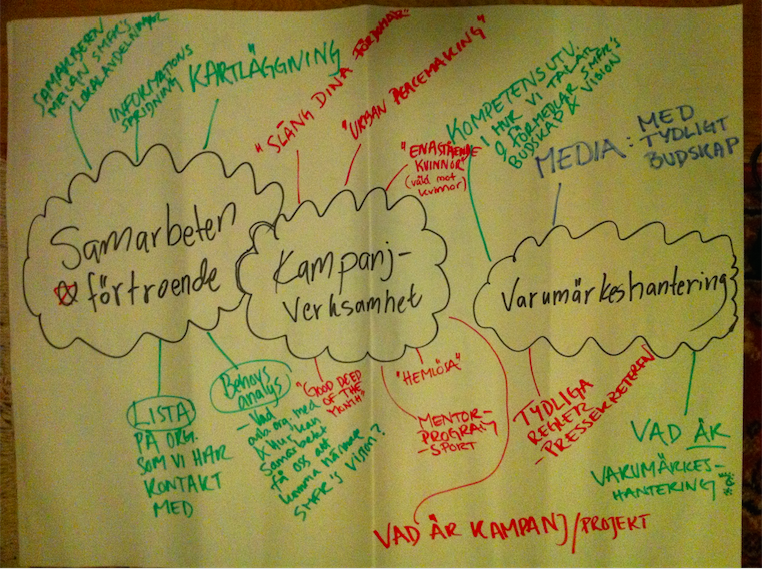 SAMARBETEN
MELLAN SMFR'S
LOKALAVDELNINGAR
INFORMATIONS
SPRIDNING
KARTLÄGGNING
"SLÄNG DINA FÖRDOMAR"
"URBAN PEACEMAKING"
"ENASTÅENDE
KVINNOR"
(våld mot
kvinnor)
KOMPETENSUTV.
I HUR VI TALAR
& FÖRMEDLAR SMFR'S
BUDSKAP & VISION
MEDIA: MED
TYDLIGT
BUDSKAP
Samarbeten
& förtroende
Kampanj-
verksamhet
Varumärkeshantering
LISTA
PÅ ORG.
SOM VI HAR
KONTAKT
MED
Behovs
analys
- Vad
org. med
& hur kan
samarbetet
få oss att
komma närmare
SMFR'S vision?
"GOOD DEED
OF THE
MONTH"
"HEMLÖSA"
MENTOR-
PROGRAM
- SPORT
VAD ÄR KAMPANJ/PROJEKT
TYDLIGA
REGLER
- PRESSEKRETEREN
VAD ÄR
VARUMÄRKES-
HANTERING